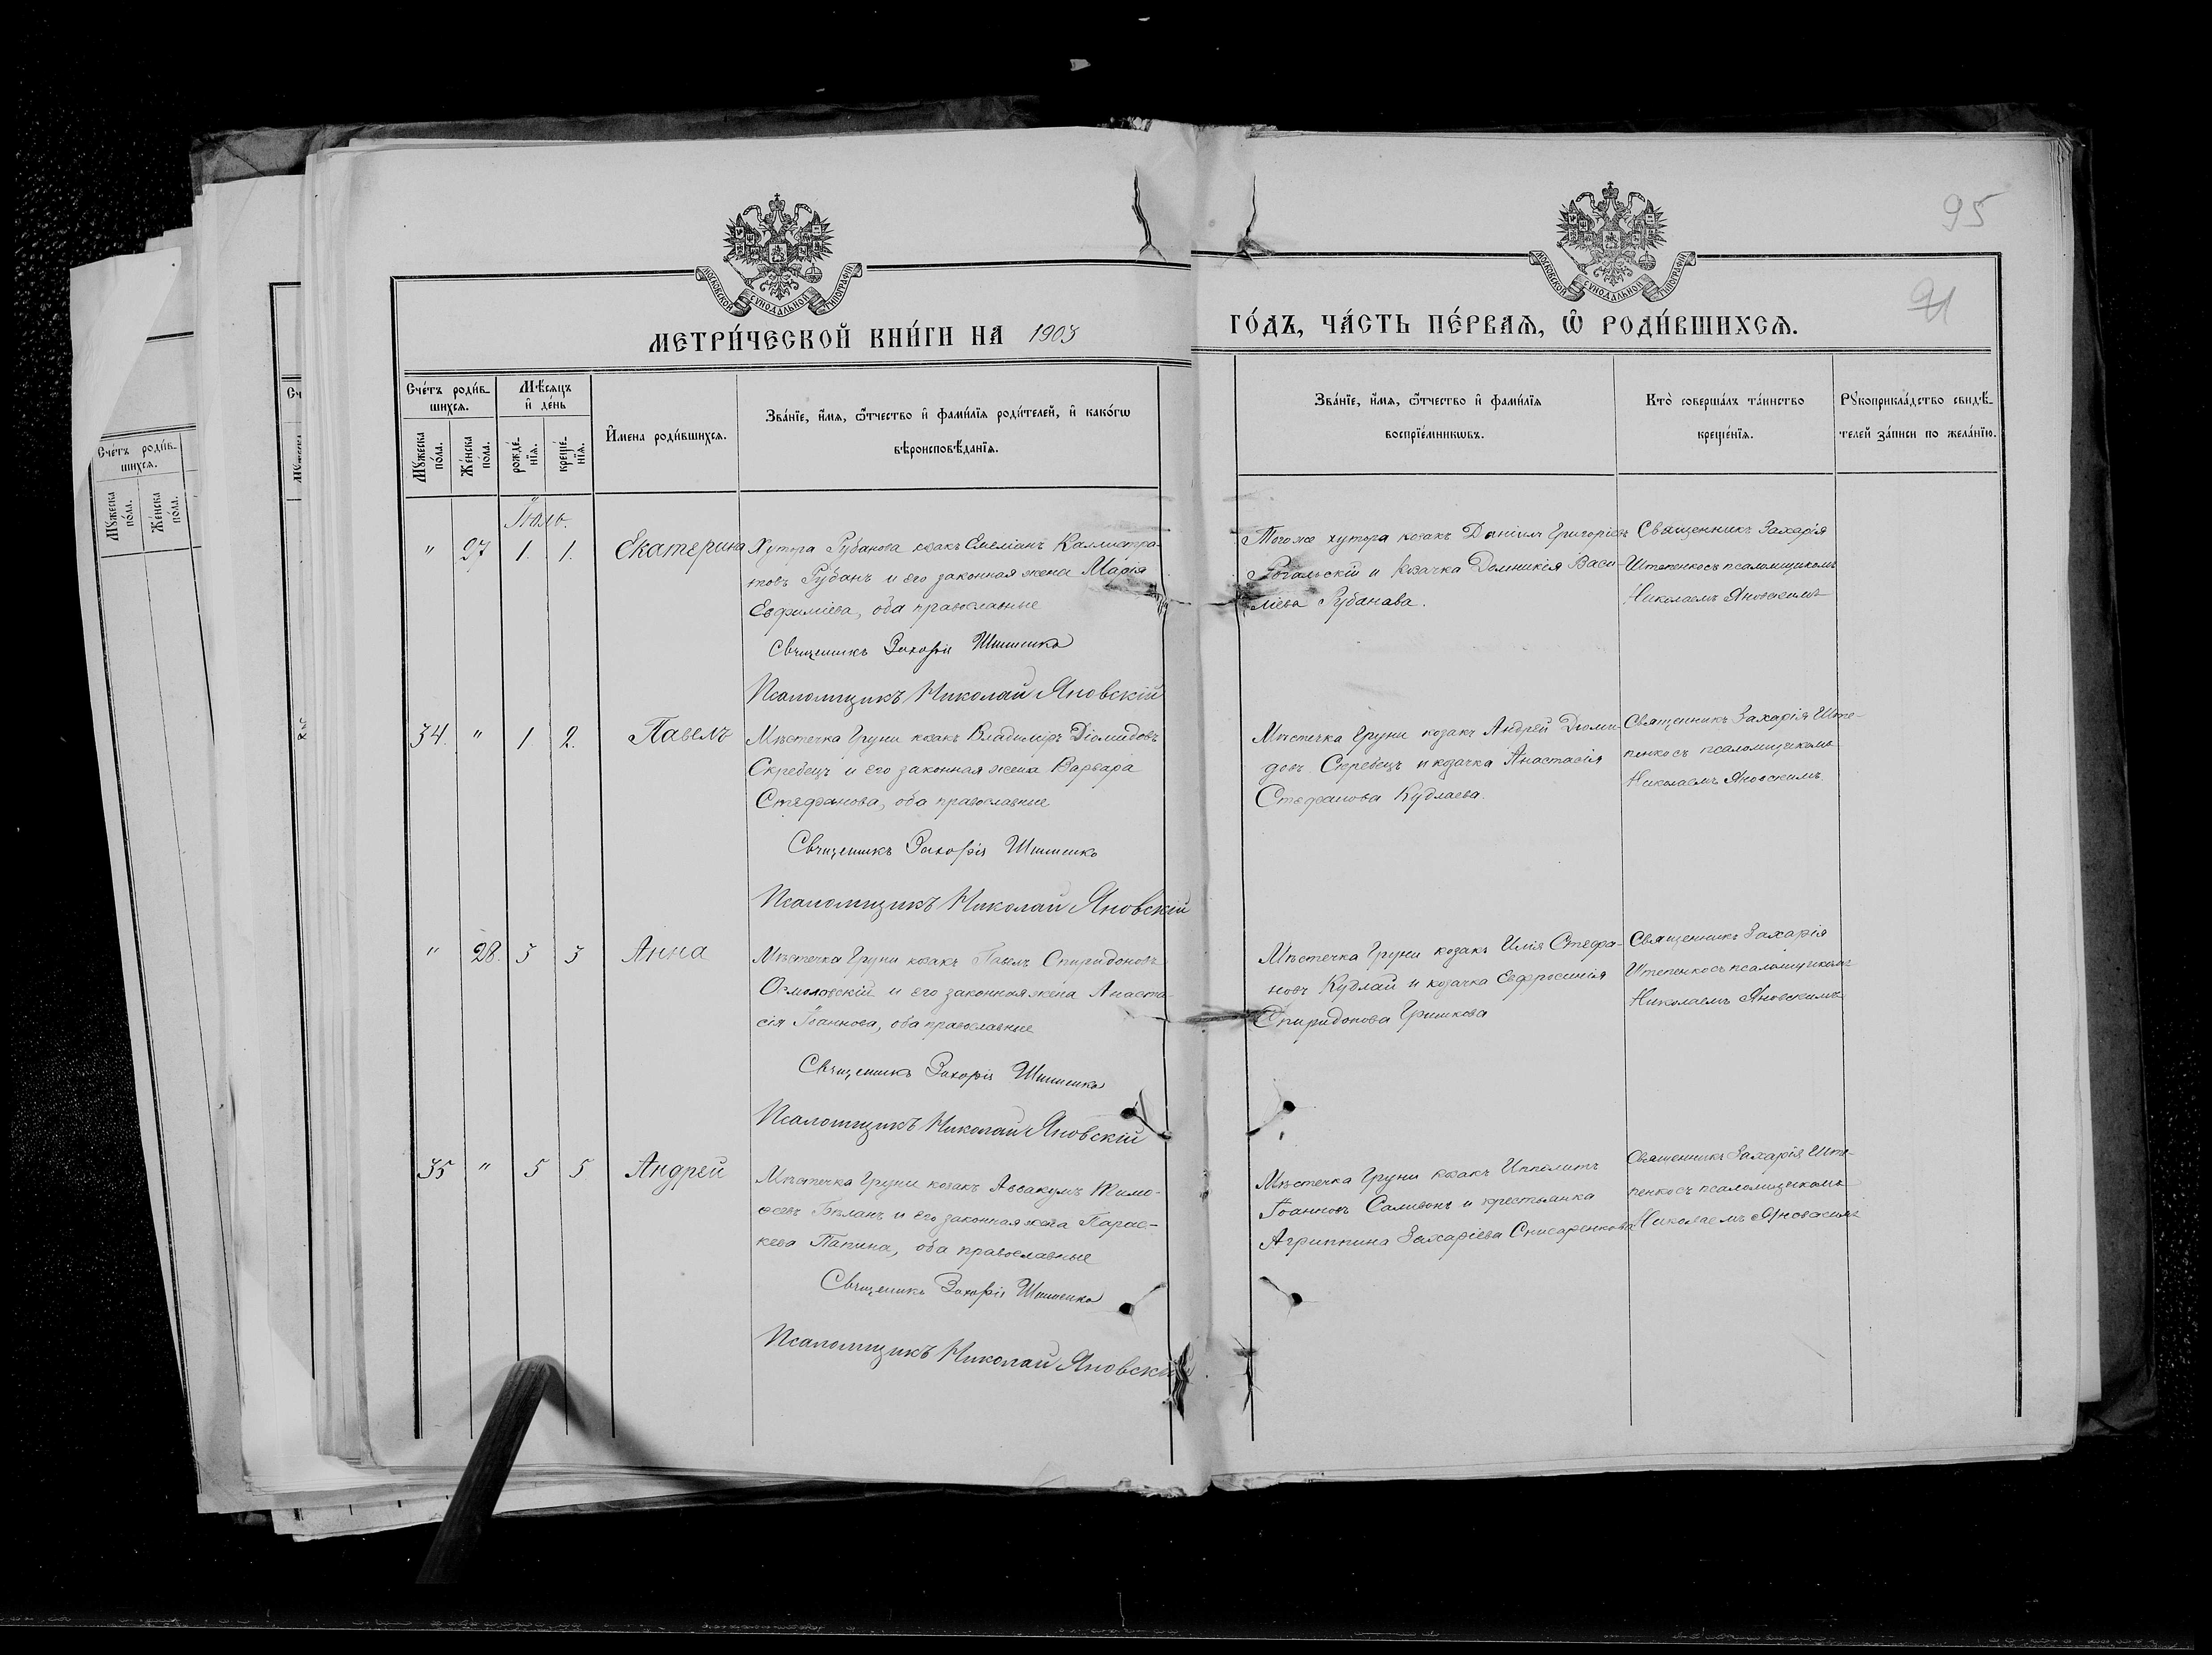 95
91
МОСКОВСКОЙ СѴНОДАЛЬНОЙ ТИПОГРАФІИ
МОСКОВСКОЙ СѴНОДАЛЬНОЙ ТИПОГРАФІИ
МЕТРИ́ЧЕСКОЙ КНИ́ГИ НА 1903
ГО́ДЪ, ЧА́СТЬ ПЕ́РВАѦ, Ѡ҆ РОДИ́ВШИХСѦ.
Сче́тъ роди́в-
шихсѧ.
Мѣ́сѧцъ
и҆ де́нь
Мꙋ́жеска по́ла.
Же́нска по́ла.
рожде́-нїѧ.
креще́-нїѧ.
И҆мена роди́вшихсѧ.
Зва́нїе, и҆́мѧ, ѻ҆́тчество и҆ фами́лїѧ роди́телей, и҆ како́гѡ
вѣроисповѣ́данїѧ.
Зва́нїе, и҆́мѧ, ѻ҆́тчество и҆ фами́лїѧ
воспрїе́мникѡвъ.
Кто̀ соверша́лъ та́инство
креще́нїѧ.
Рꙋкоприкла́дство свидѣ́-
телей за́писи по жела́нїю.
Сче́тъ роди́в-
шихсѧ.
Мꙋ́жеска по́ла.
Же́нска по́ла.
Іюль.
" 27 1. 1. Екатерина
Хутора Рубанова козакъ Емеліанъ Каллистра-
товъ Рубанъ и его законная жена Марія
Евфиміева, оба православные
Священникъ Захарія
Псаломщикъ Николай Яновскій
Того же хутора козакъ Даніилъ Григоріевъ
Рогальскій и козачка Домникія Васи-
ліева Рубанава.
Священникъ Захарія
Штепенко съ псаломщикомъ
Николаемъ Яновскимъ
34. " 1 2. Павелъ
Мѣстечка Груни козакъ Владиміръ Діомидовъ
Скребецъ и его законная жена Варвара
Стефанова, оба православные
Священникъ Захарія
Псаломщикъ Николай Яновскій
Мѣстечка Груни козакъ Андрей Діоми-
довъ Скребецъ и козачка Анастасія
Стефанова Кудлаева.
Священникъ Захарія Ште-
пенко съ псаломщикомъ
Николаемъ Яновскимъ.
" 28. 3 3 Анна
Мѣстечка Груни козакъ Павелъ Спиридоновъ
и его законная жена Анаста-
сія Іоаннова, оба православные
Священникъ Захарія
Псаломщикъ Николай Яновскій
Мѣстечка Груни козакъ Илія Стефа-
новъ Кудлай и козачка Евфросинія
Спиридонова Гришкова
Священникъ Захарія
Штепенко съ псаломщикомъ
Николаемъ Яновскимъ
35 " 5 5 Андрей
Мѣстечка Груни козакъ Аввакумъ Тимо-
ѳеевъ Бѣланъ и его законная жена Парас-
кева Папина, оба православные
Священникъ Захарія
Псаломщикъ Николай Яновскій
Мѣстечка Груни козакъ Ипполитъ
Іоанновъ Саливонъ и крестьянка
Агриппина Захаріева Снисаренкова
Священникъ Захарія Ште-
пенко съ псаломщикомъ
Николаемъ Яновскимъ